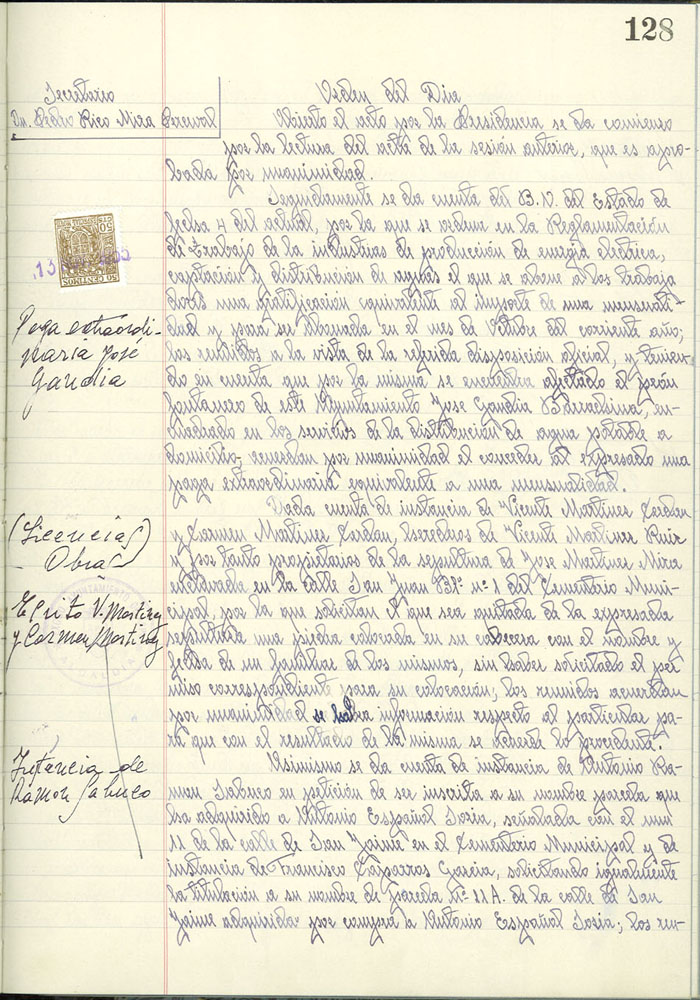 128
Secretario
Dn. Pedro Rico Mira Perceval
Orden del Dia
Abierto el acto por la Presidencia se da comienzo
por la lectura del acta de la sesión anterior, que es apro-
bada por unanimidad.
Seguidamente se da cuenta del B.O. del Estado de
fecha 4 del actual, por la que se ordena en la Reglamentación
de Trabajo de la industrias de producción de energía electrica,
captación y distribución de aguas el que se abone a los trabaja
dores una gratificación equivalente al importe de una mensuali-
dad y para su abonada en el mes de Octubre del corriente año;
los reunidos a la vista de la referida disposición oficial, y tenien-
do en cuenta que por la misma se encuentra afectado el peón
fontanero de este Ayuntamiento Jose Gandia Barrachina, en-
cuadrado en los servicios de la distribución de agua potable a
domicilio, acuerdan por unanimidad el conceder al expresado una
paga extraordinaria equivalente a una mensualidad.
Paga extraordi-
naria José
Gandia
50 CENTIMOS
13
Dada cuenta de instancia de Vicente Martinez Cerdan
y Carmen Martinez Cerdan, herederos de Vicente Martinez Ruiz
y por tanto propietarios de la sepultura de Jose Martinez Mira
enclavada en la calle San Juan Blº. nº 1 del Cementerio Muni-
cipal, por la que solicitan el que sea quitada de la expresada
sepultura una piedra colocada en su cabecera con el nombre y
fecha de un familiar de los mismos, sin haber solicitado el per
miso correspondiente para su colocación; los reunidos acuerdan
por unanimidad se habra información respecto al particular pa-
ra que con el resultado de la misma se acuerde lo procedente.
(Licencia)
Obra
Escrito V. Martinez
y Carmen Martinez
Asimismo se da cuenta de instancia de Antonio Ra-
mon Sabuco en petición de ser inscrita a su nombre parcela que
ha adquirido a Antonio Español Soria, señalada con el num
11 de la calle de San Jaime en el Cementerio Municipal y de
instancia de Francisco Caparros Garcia, solicitando igualmente
la titulación a su nombre de parcela nº 11 A. de la calle de San
Jaime adquirida por compra a Antonio Español Soria; los reu-
Instancia de
Ramon Sabuco